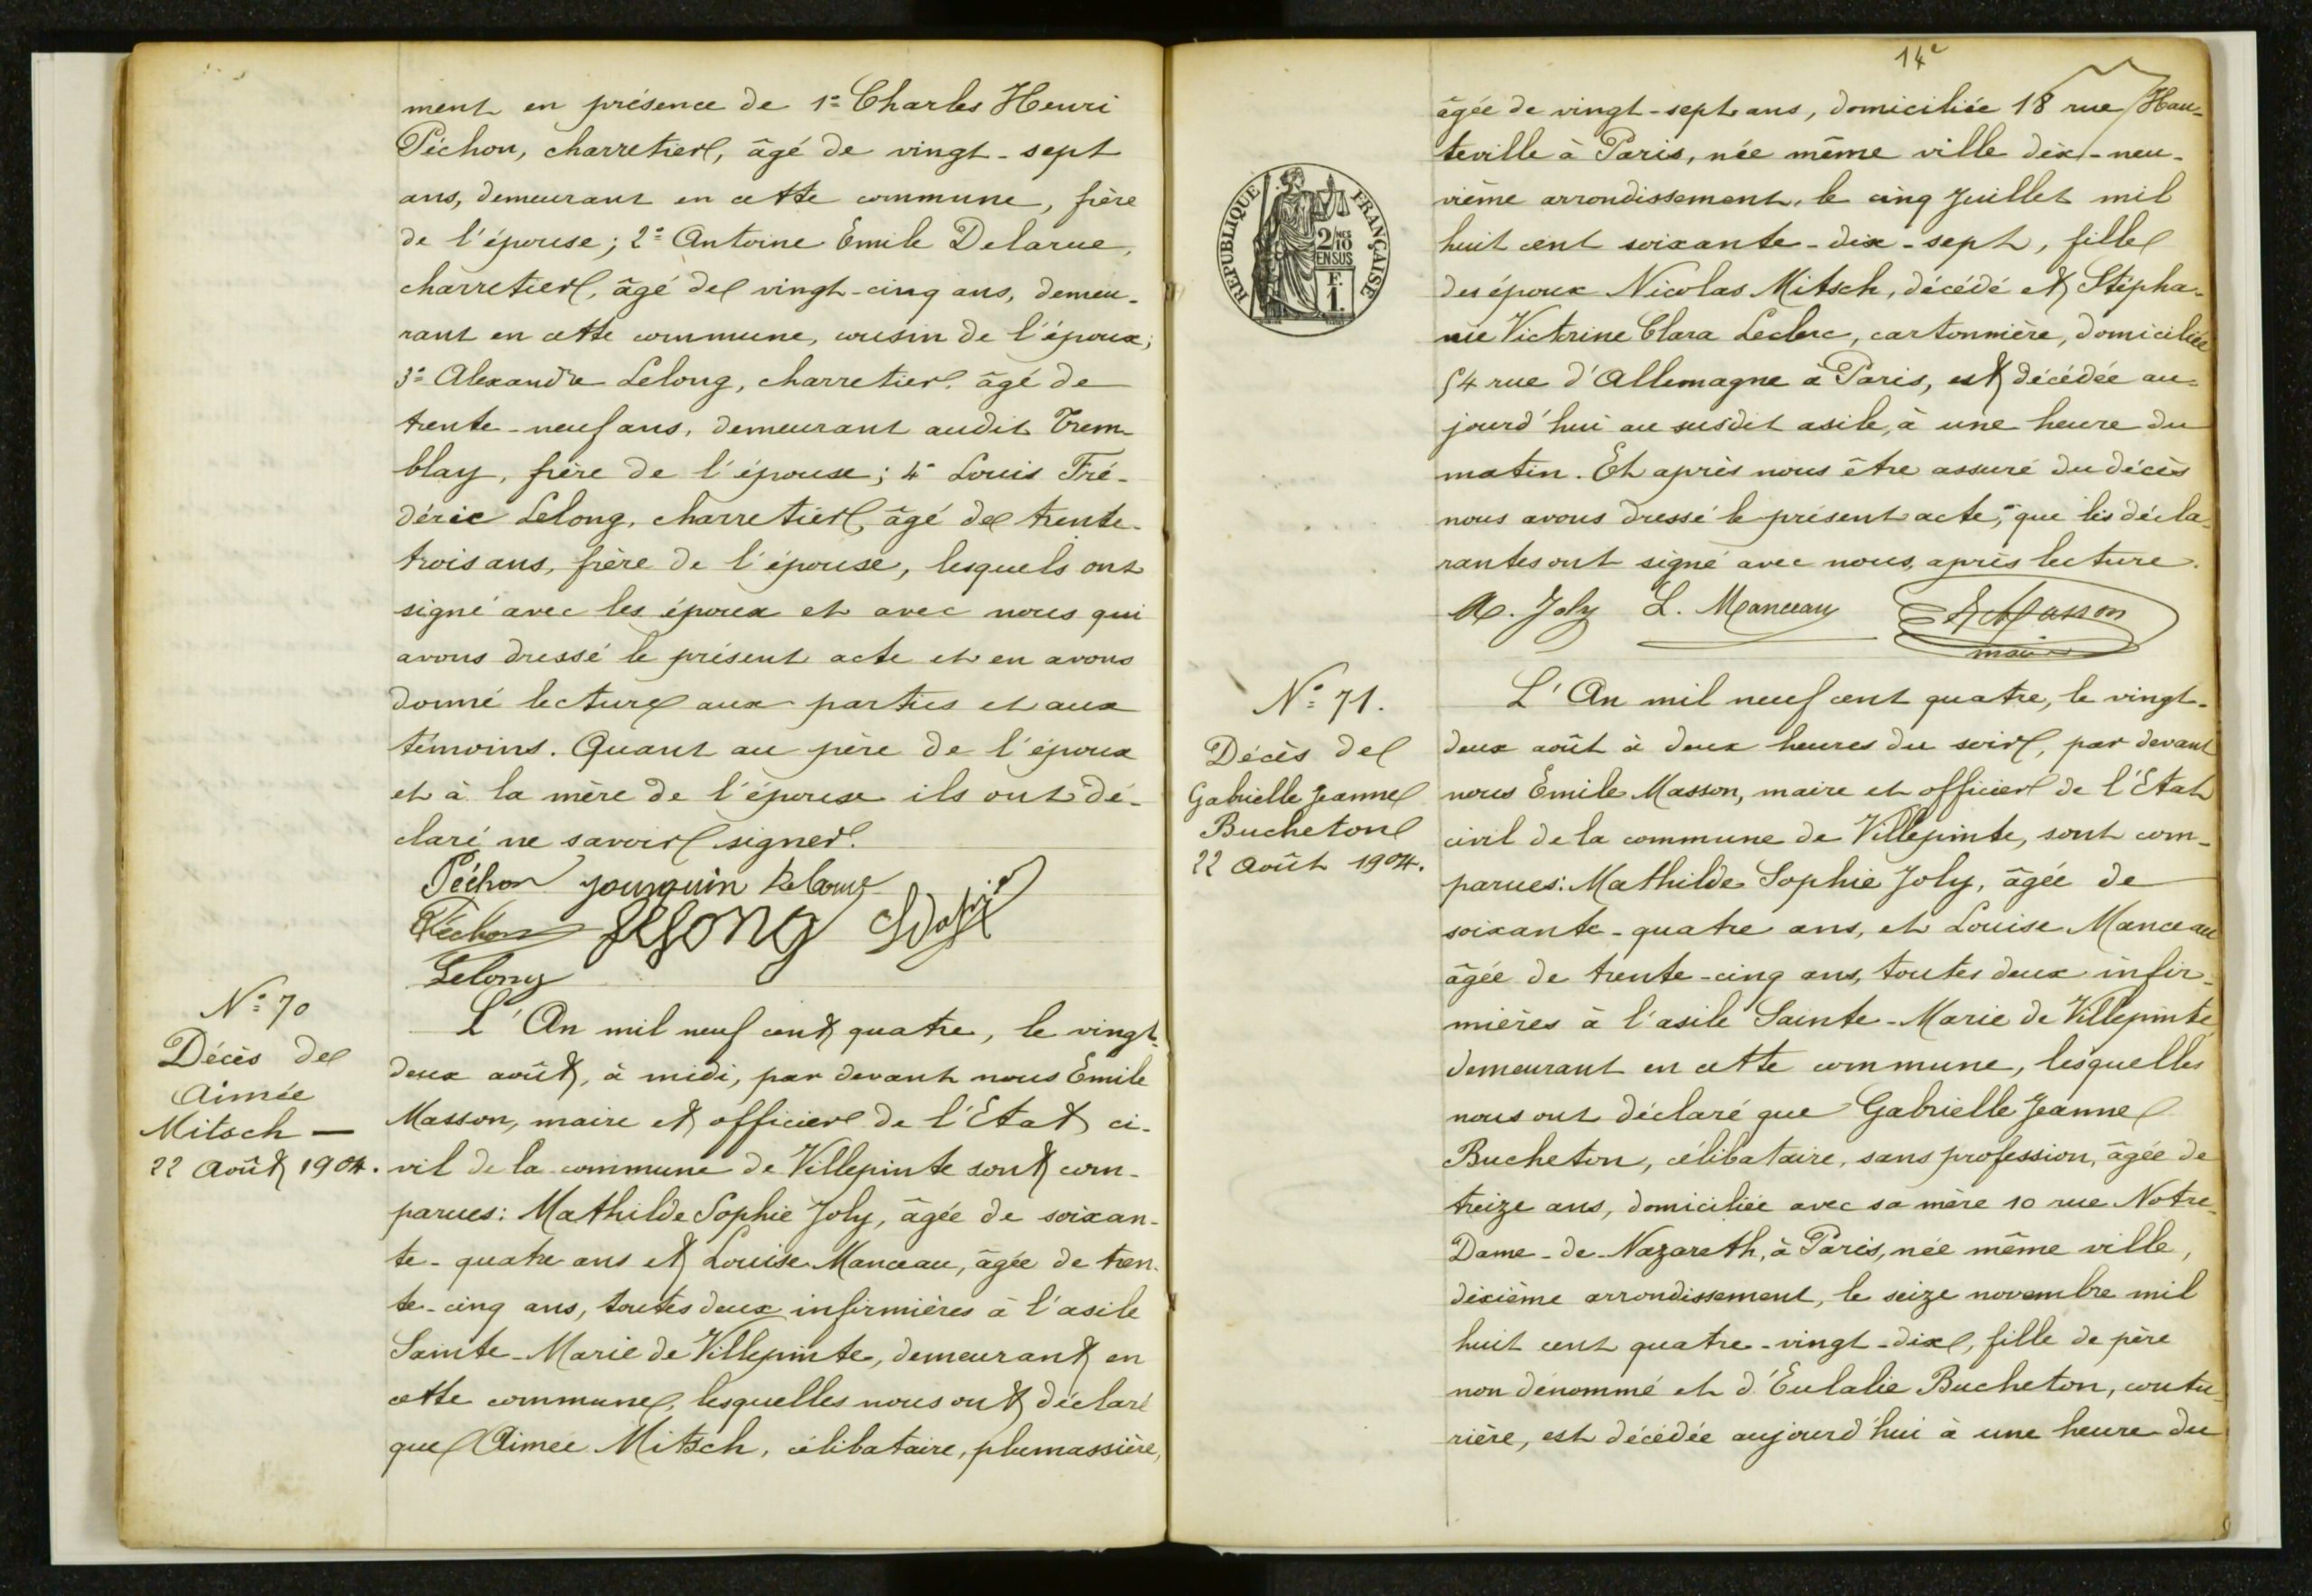 ment en présence de 1º Charles Henri
Péchon, charretier, âgé de vingt-sept
ans, demeurant en cette commune, frère
de l'épouse; 2º Antoine Emile Delarue,
charretier, âgé de vingt-cinq ans, demeu-
rant en cette commune, cousin de l'époux;
3º Alexandre Lelong, charretier, âgé de
trente-neuf ans, demeurant audit Trem-
blay, frère de l'épouse; 4º Louis Fré-
déric Lelong, charretier, âgé de trente-
trois ans, frère de l'épouse, lesquels ont
signé avec les époux et avec nous qui
avons dressé le présent acte et en avons
donné lecture aux parties et aux
témoins. Quant au père de l'époux
et à la mère de l'épouse ils ont dé-
claré ne savoir signer.
Péchon
Péchon Lelong
Lelong
Nº 70
Décès de
Aimée
Mitsch —
22 Août 1904.
L'An mil neuf cent quatre, le vingt-
deux août, à midi, par devant nous Emile
Masson, maire et officier de l'Etat ci-
vil de la commune de Villepinte sont com-
parues: Mathilde Sophie Joly, âgée de soixan-
te-quatre ans et Louise Manceau, âgée de tren-
te-cinq ans, toutes deux infirmières à l'asile
Sainte-Marie de Villepinte, demeurant en
cette commune, lesquelles nous ont déclaré
que Aimée Mitsch, célibataire, plumassière,
14e
âgée de vingt-sept ans, domiciliée 18 rue Hau-
teville à Paris, née même ville dix-neu-
vième arrondissement, le cinq Juillet mil
huit cent soixante-dix-sept, fille
des époux Nicolas Mitsch, décédé et Stépha-
nie Victorine Clara Leclerc, cartonnière, domiciliée
54 rue d'Allemagne à Paris, est décédée au-
jourd'hui au susdit asile, à une heure du
matin. Et après nous être assuré du décès
nous avons dressé le présent acte, que les décla-
rantes ont signé avec nous, après lecture.
M. Joly L. Manceau E Masson
maire
RÉPUBLIQUE FRANÇAISE
2/10 EN SUS
F.
1.
Nº 71.
Décès de
Gabrielle Jeanne
Bucheton
22 Août 1904.
L'An mil neuf cent quatre, le vingt-
deux août à deux heures du soir, par devant
nous Emile Masson, maire et officier de l'Etat
civil de la commune de Villepinte, sont com-
parues: Mathilde Sophie Joly, âgée de
soixante-quatre ans, et Louise Manceau
âgée de trente-cinq ans, toutes deux infir-
mières à l'asile Sainte-Marie de Villepinte,
demeurant en cette commune, lesquelles
nous ont déclaré que Gabrielle Jeanne
Bucheton, célibataire, sans profession, âgée de
treize ans, domiciliée avec sa mère 10 rue Notre-
Dame-de-Nazareth, à Paris, née même ville,
dixième arrondissement, le seize novembre mil
huit cent quatre-vingt-dix, fille de père
non dénommé et d'Eulalie Bucheton, coutu-
rière, est décédée aujourd'hui à une heure du